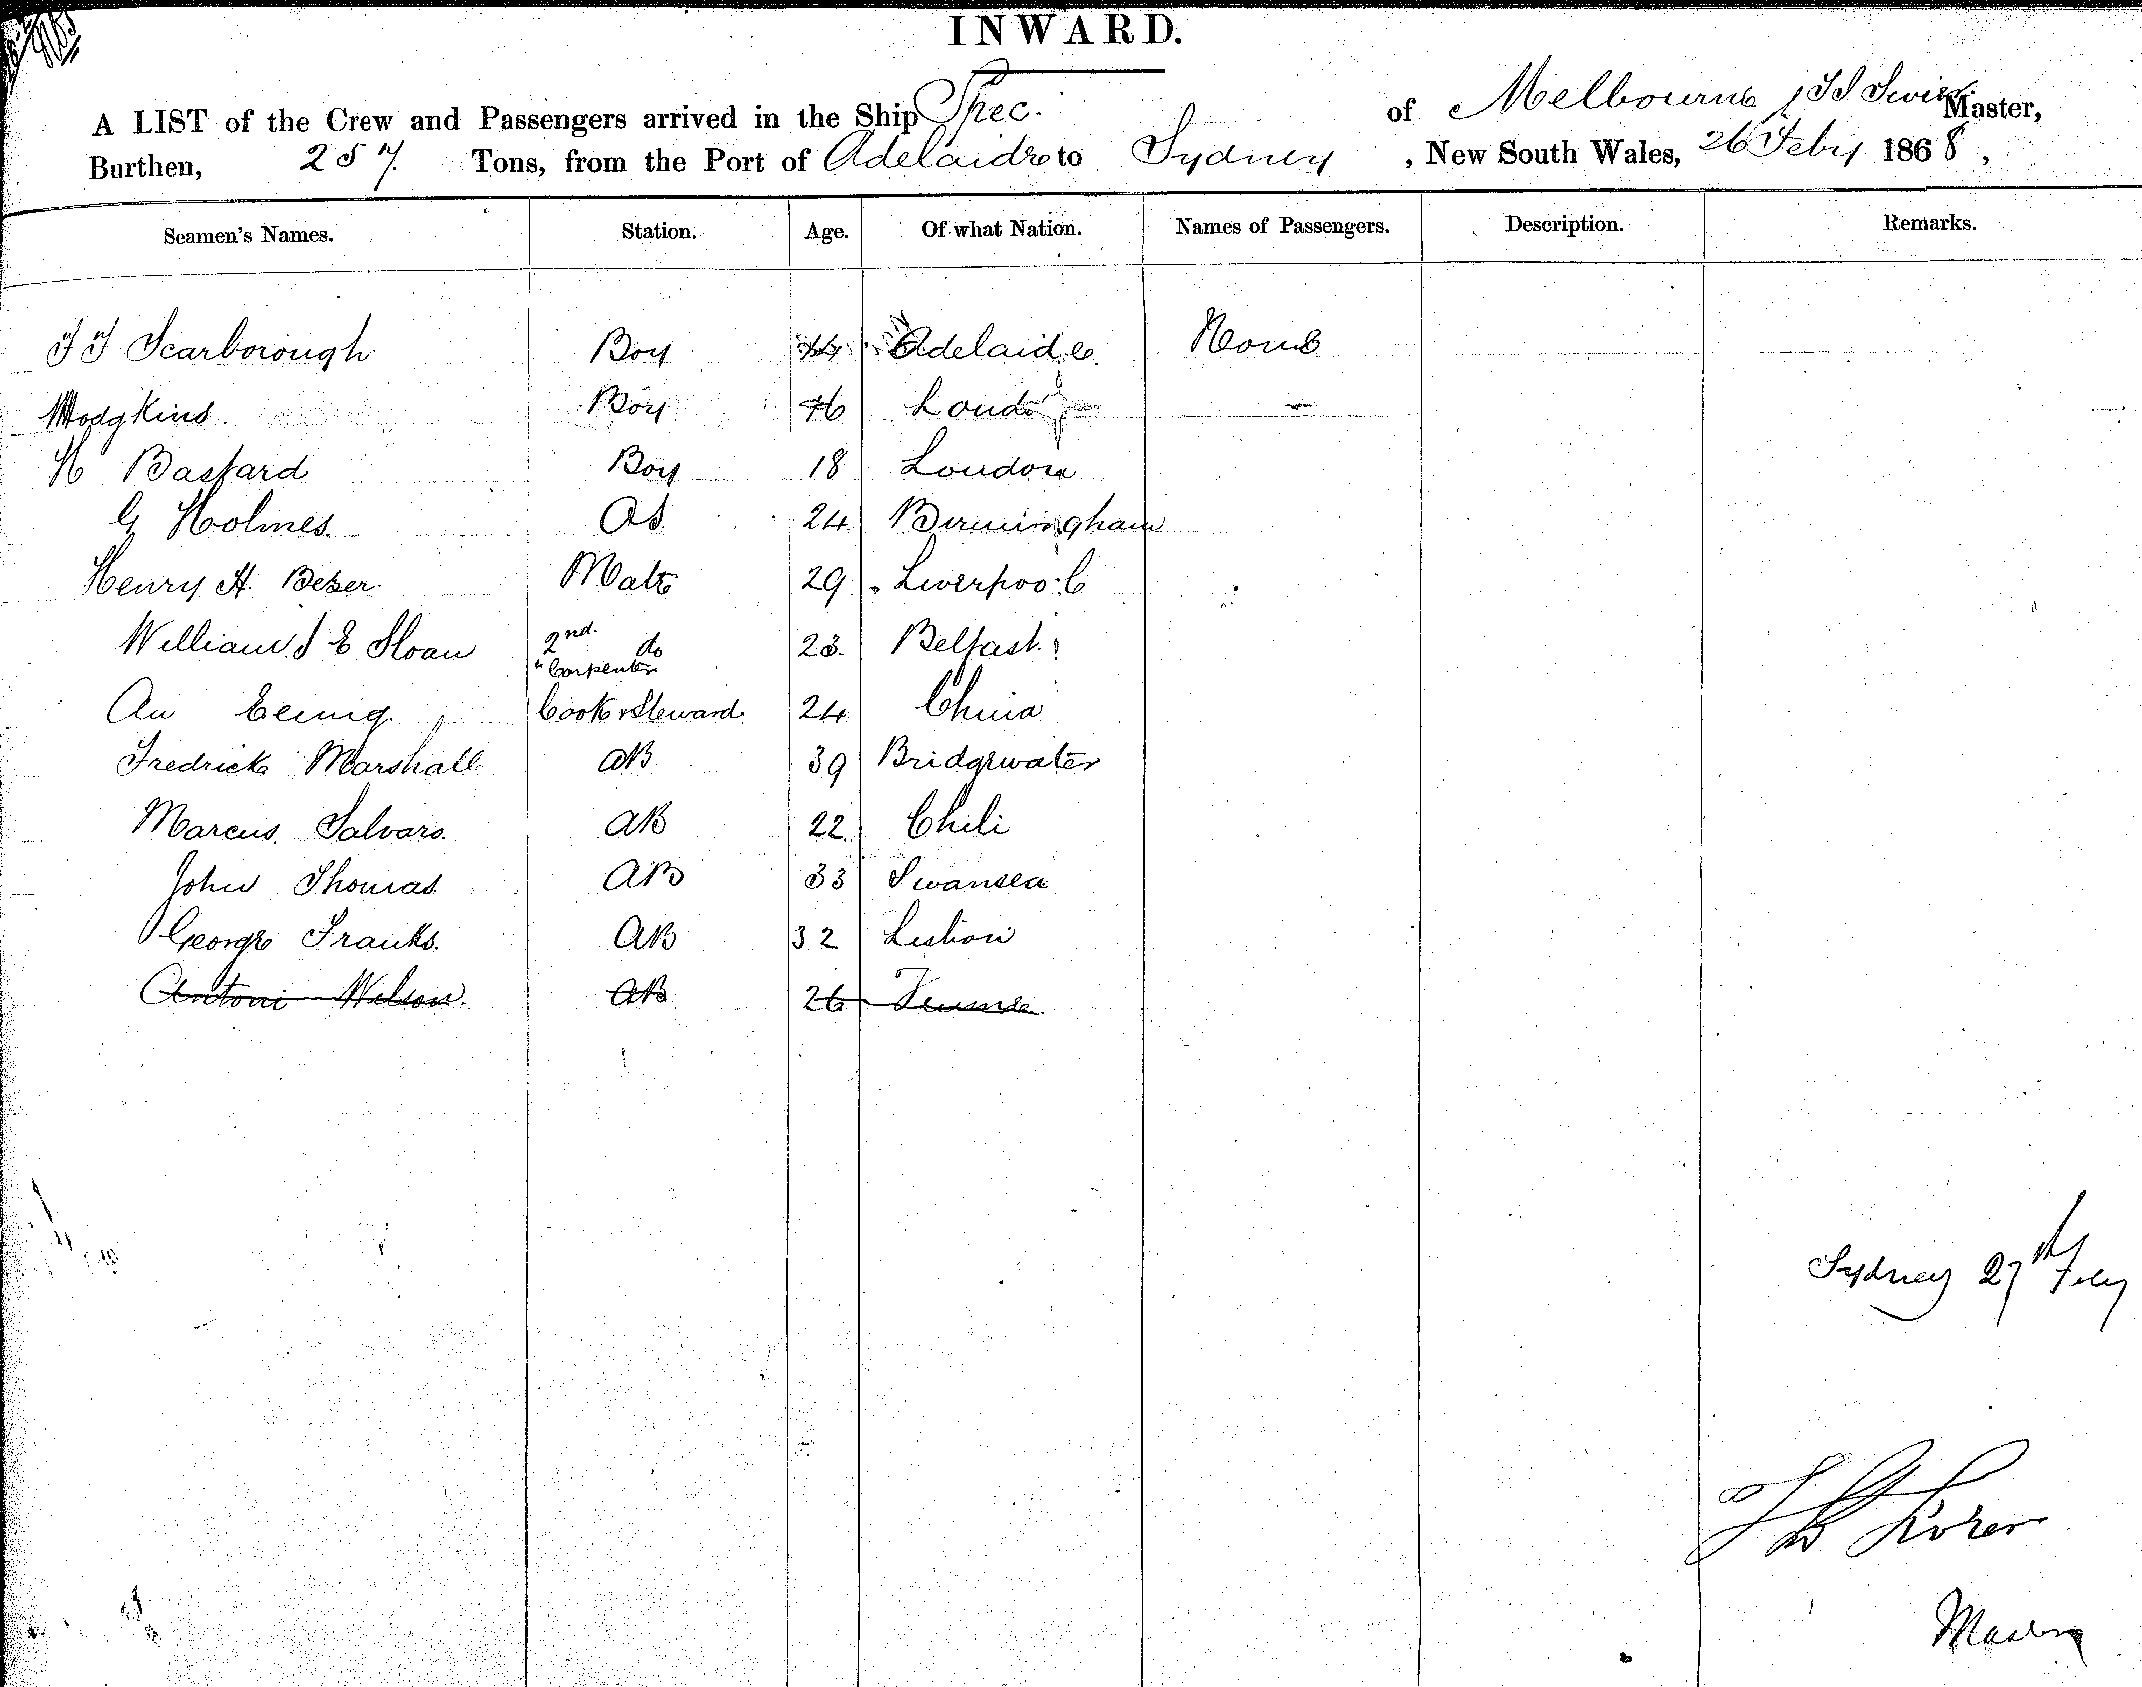 INWARD.
A LIST of the Crew and Passengers arrived in the Ship Spec. of Melbourne, Master,
Burthen, 257. Tons, from the Port of Adelaide to Sydney, New South Wales, 26 Feby 1868,
Seamen's Names. Station. Age. Of what Nation. Names of Passengers. Description. Remarks.
Scarborough Boy Adelaide None
Hodgkins Boy 16
H Bastard Boy 18 London
G Holmes OS 24 Birmingham
Henry H. Beber Mate 29 Liverpool
William J E Sloan 2nd do 23. Belfast.
" Carpenter
Au Cook & Steward 24 China
Fredrick Marshall AB 39 Bridgewater
Marcus Salvaro AB 22 Chili
John Thomas AB 33 Swansea
George Franks. AB 32 Lisbon
Antoni Wilson. AB 26
Sydney 27th Feby
Master